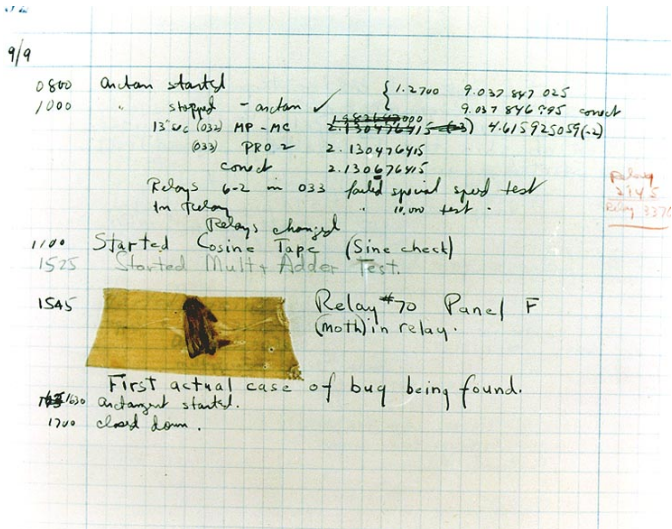 9/9
0800 Antan started { 1.2700 9.037 847 025
1000 " stopped - antan ✓ 9.037 846 995 correct
13"uc (032) MP - MC 2.130476415 (-3) 4.615925059(-2)
(033) PRO 2 2.130476415
correct 2.130676415
Relays 6-2 in 033 failed special speed test
in Relay " 10.000 test .
Relays changed
Relay
2145
Relay 3370
1100 Started Cosine Tape (Sine check)
1525 Started Mult + Adder Test.
1545 Relay #70 Panel F
(moth) in relay.
First actual case of bug being found.
1630 antangent started.
1700 closed down .